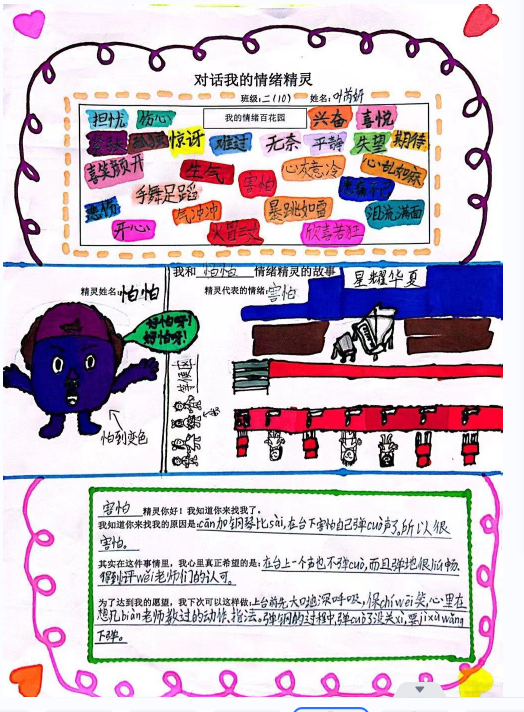 对话我的情绪精灵
班级：二（10） 姓名：叶芮妍
我的情绪百花园
担忧 伤心 兴奋 喜悦
孤独 惊讶 难过 无奈 平静 失望 期待
喜笑颜开 生气 心灰意冷 心乱如麻
手舞足蹈 害怕
悲伤 气冲冲 暴跳如雷 泪流满面
开心 火冒三丈 欣喜若狂
我和 怕怕 情绪精灵的故事
星耀华夏
精灵姓名：怕怕
精灵代表的情绪：害怕
好怕呀！
好怕呀！
等候区
我
怕到变色
害怕 精灵你好！我知道你来找我了。
我知道你来找我的原因是：cān加钢琴比sài，在台下害怕自己弹cuò声了，所以很
害怕。
其实在这件事情里，我心里真正希望的是：在台上一个声也不弹cuò，而且弹地很liú畅，
得到评wěi老师们的认可。
为了达到我的愿望，我下次可以这样做：上台前先大口地深呼吸，保chí wēi笑，心里在
想几biàn老师教过的动作、指法。弹钢的过程中，弹cuò了没关xì，要jì xù wǎng
下弹。